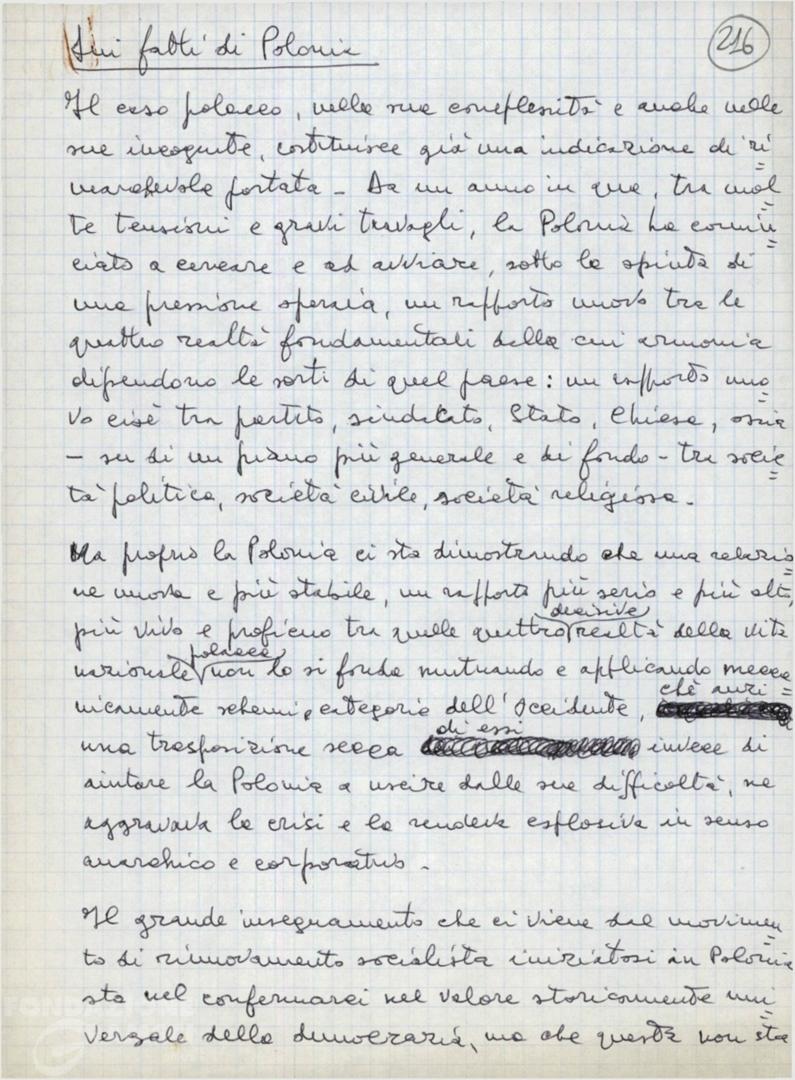 Sui fatti di Polonia
216
Il caso polacco, nella sua complessità e anche nelle
sue incognite, costituisce già una indicazione di ri=
marchevole portata - Da un anno in qua, tra mol=
te tensioni e gravi travagli, la Polonia ha comin=
ciato a cercare e ad avviare, sotto la spinta di
una pressione operaia, un rapporto nuovo tra le
quattro realtà fondamentali dalla cui armonia
dipendono le sorti di quel paese: un rapporto nuo=
vo cioè tra partito, sindacato, Stato, Chiesa, ossia
- su di un piano più generale e di fondo - tra socie=
tà politica, società civile, società religiosa.
Ma proprio la Polonia ci sta dimostrando che una relazio=
ne nuova e più stabile, un rapporto più serio e più alto,
più vivo e proficuo tra quelle quattro decisive realtà della vita
nazionale polacca non lo si fonda mutuando e applicando mecca=
nicamente schemi e categorie dell'Occidente, chè anzi
una trasposizione secca di essi invece di
aiutare la Polonia a uscire dalle sue difficoltà, ne
aggravava la crisi e la rendeva esplosiva in senso
anarchico e corporativo.
Il grande insegnamento che ci viene dal movimen=
to di rinnovamento socialista iniziatosi in Polonia
sta nel confermarci nel valore storicamente uni=
versale della democrazia, ma che questa non sta
FONDAZIONE